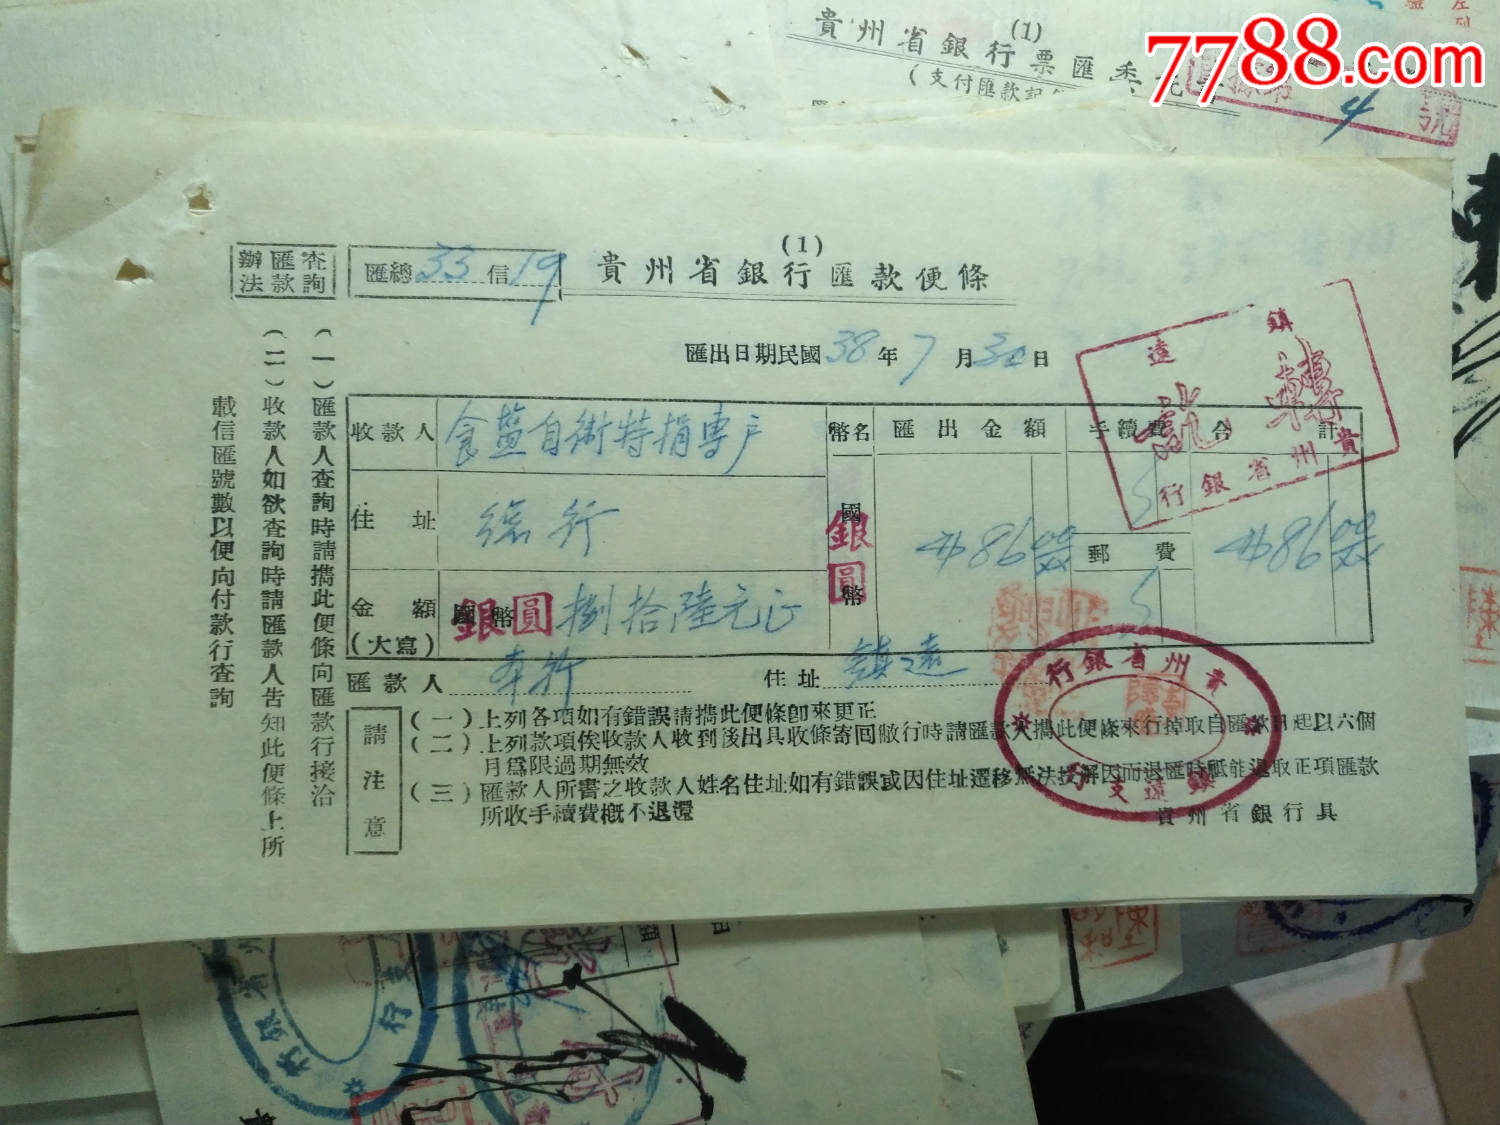 7788.com
(1)
貴州省銀行票匯委
(支付匯款記
4
號
(1)
貴州省銀行匯款便條
匯總33信19
查詢匯款辦法
(一)匯款人查詢時請攜此便條向匯款行接洽
(二)收款人如欲查詢時請匯款人告知此便條上所
載信匯號數以便向付款行查詢
匯出日期民國38年7月30日
鎮遠
貴州省銀行
收款人 食鹽自衛特捐專戶
幣名 匯出金額 手續費 合計
住址 總行
國幣
銀圓
86
郵費
86
金額
(大寫)
國幣
銀圓 捌拾陸元正
匯款人 本行 住址 鎮遠
請注意
(一)上列各項如有錯誤請攜此便條卽來更正
(二)上列款項俟收款人收到後出具收條寄回敝行時請匯款人攜此便條來行掉取自匯款日起以六個
月爲限過期無效
(三)匯款人所書之收款人姓名住址如有錯誤或因住址遷移無法投解因而退匯時祗能退取正項匯款
所收手續費槪不退還
貴州省銀行具
貴州省銀行
鎮遠支行